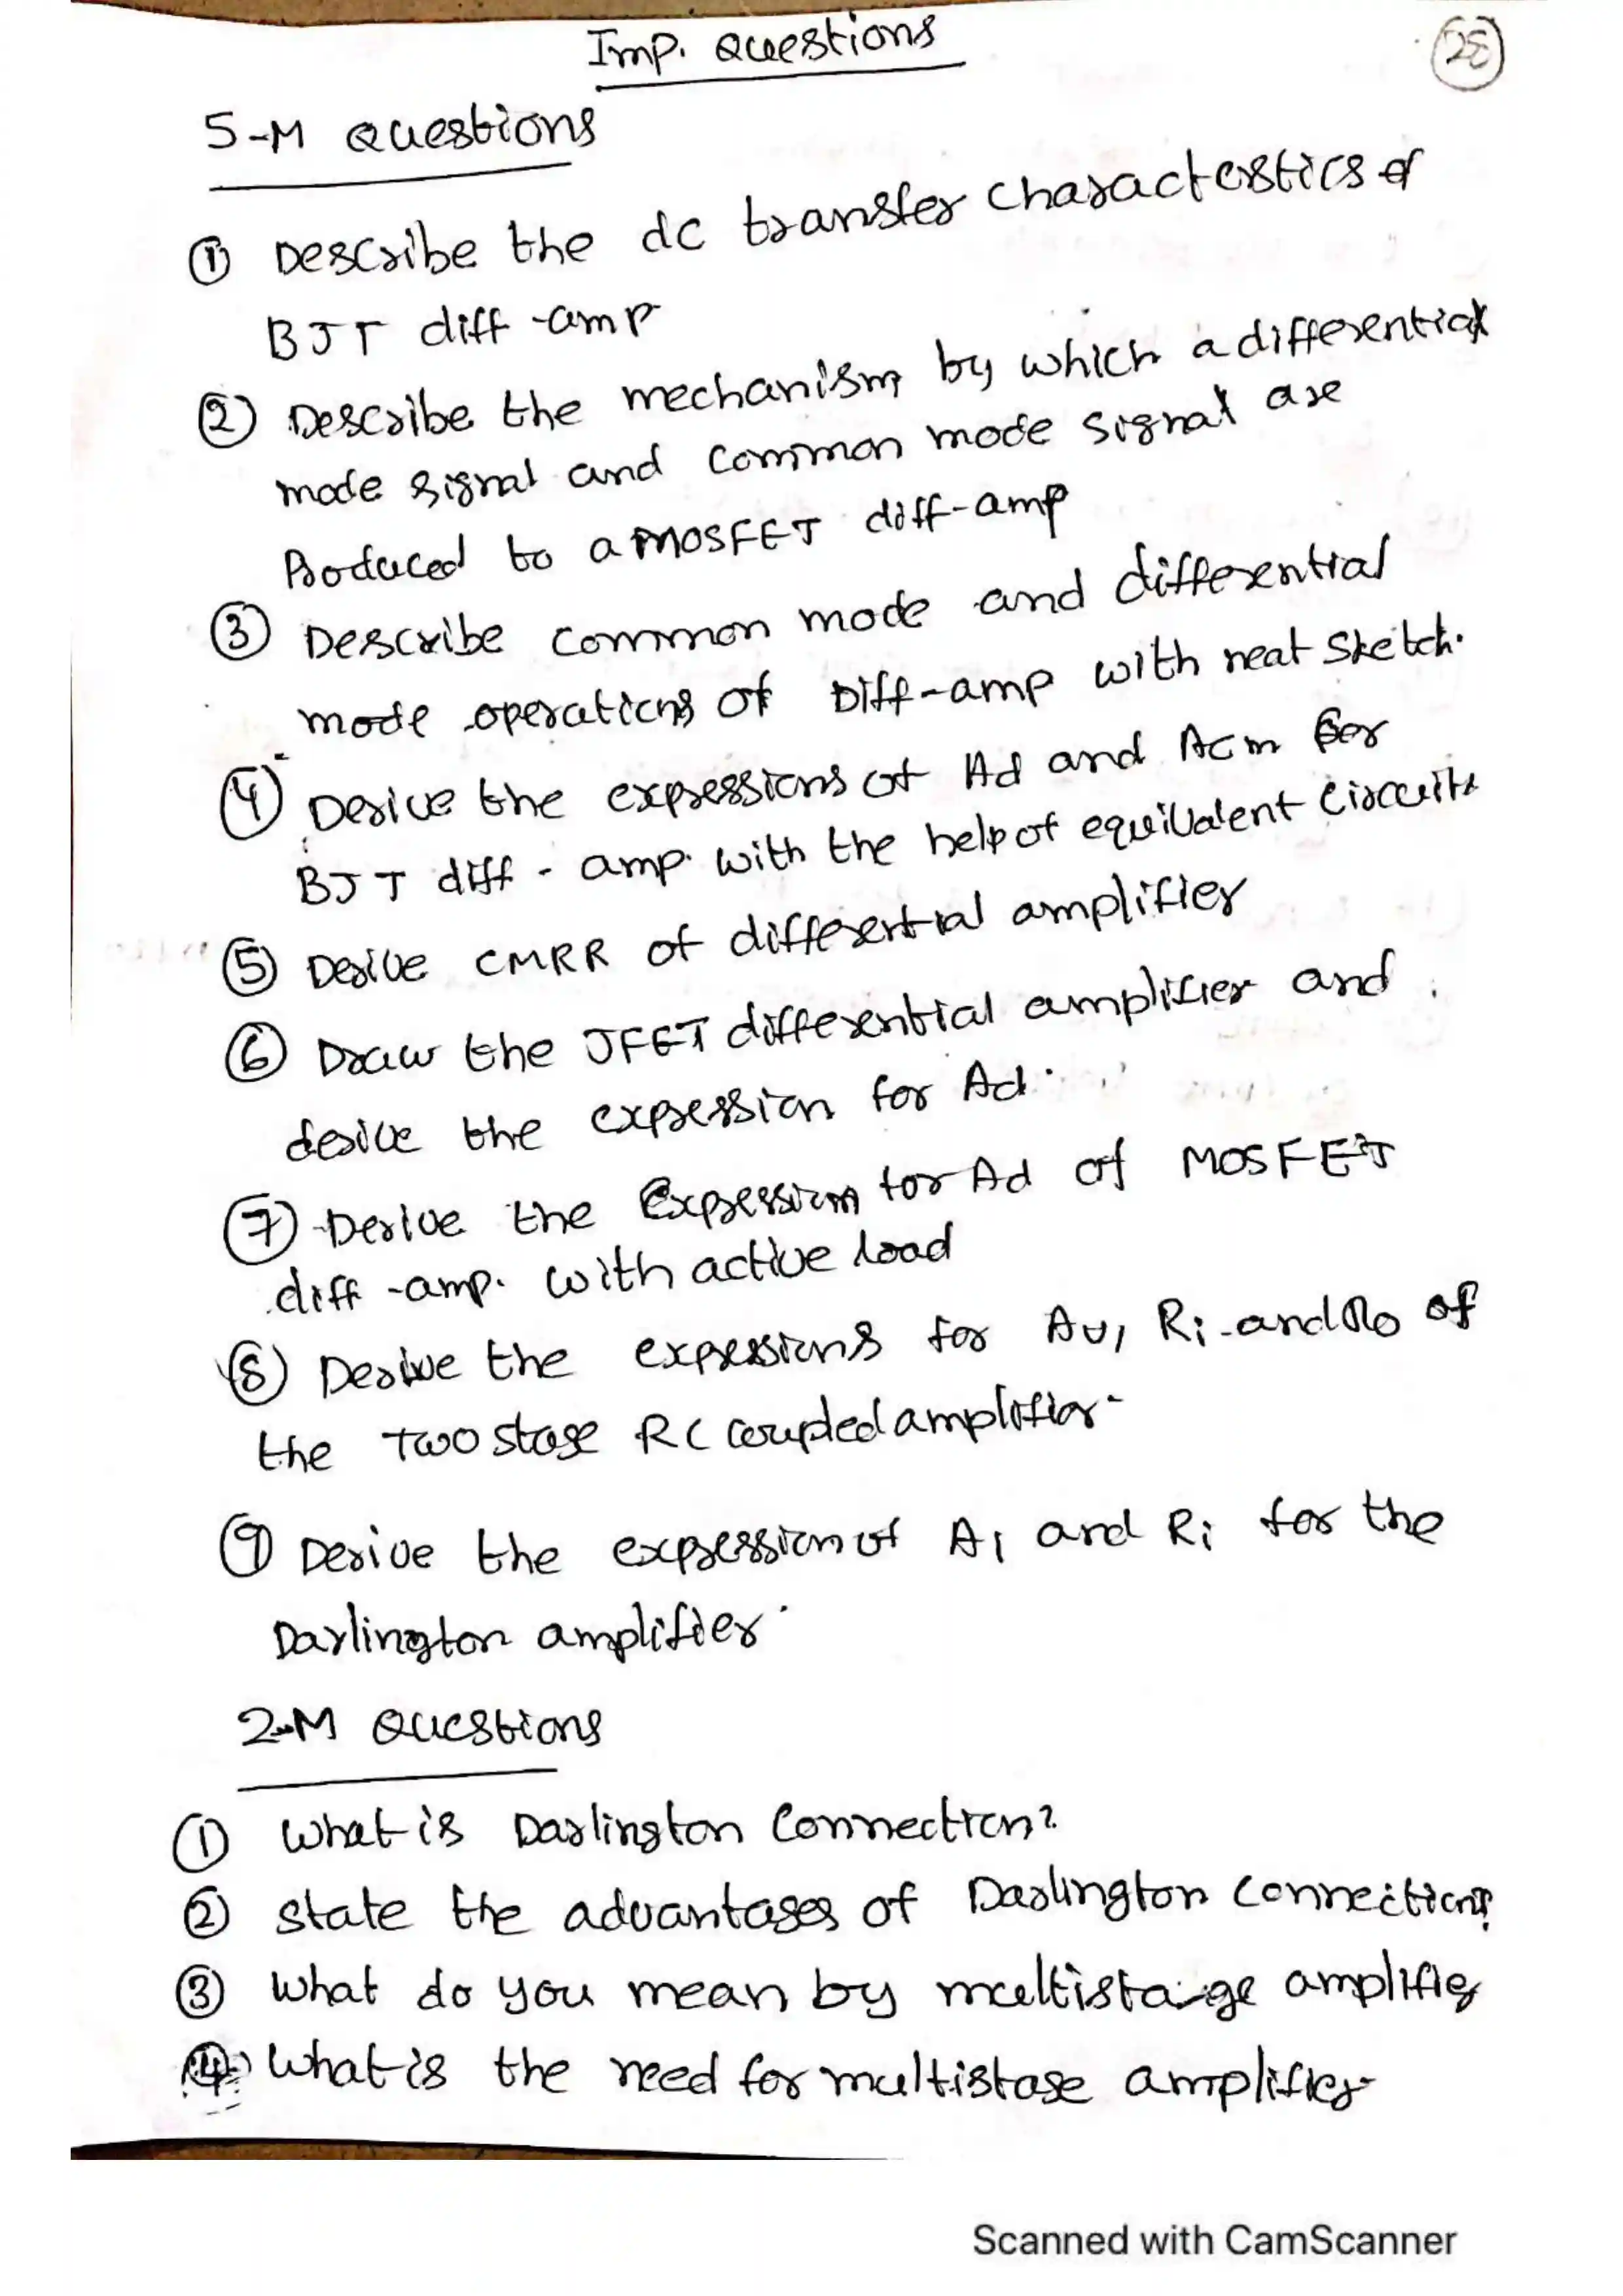 Imp. Questions
25
5-M Questions
① Describe the dc transfer characterstics of
BJT diff-amp
② Describe the mechanism by which a differential
mode signal and common mode signal are
Produced to a MOSFET diff-amp
③ Describe common mode and differential
mode operations of Diff-amp with neat Sketch.
④ Derive the expressions of Ad and Acm for
BJT diff-amp. with the help of equivalent circuits
⑤ Derive CMRR of differential amplifier
⑥ Draw the JFET differential amplifier and
derive the expression for Ad.
⑦ Derive the Expression for Ad of MOSFET
diff-amp. with active load
⑧ Derive the expressions for Av, Ri and Ro of
the Two stage RC coupled amplifier.
⑨ Derive the expression of AI and Ri for the
Darlington amplifier.
2-M Questions
① What is Darlington Connection?
② state the advantages of Darlington connection?
③ What do you mean by multistage amplifier
④ What is the need for multistage amplifier
Scanned with CamScanner